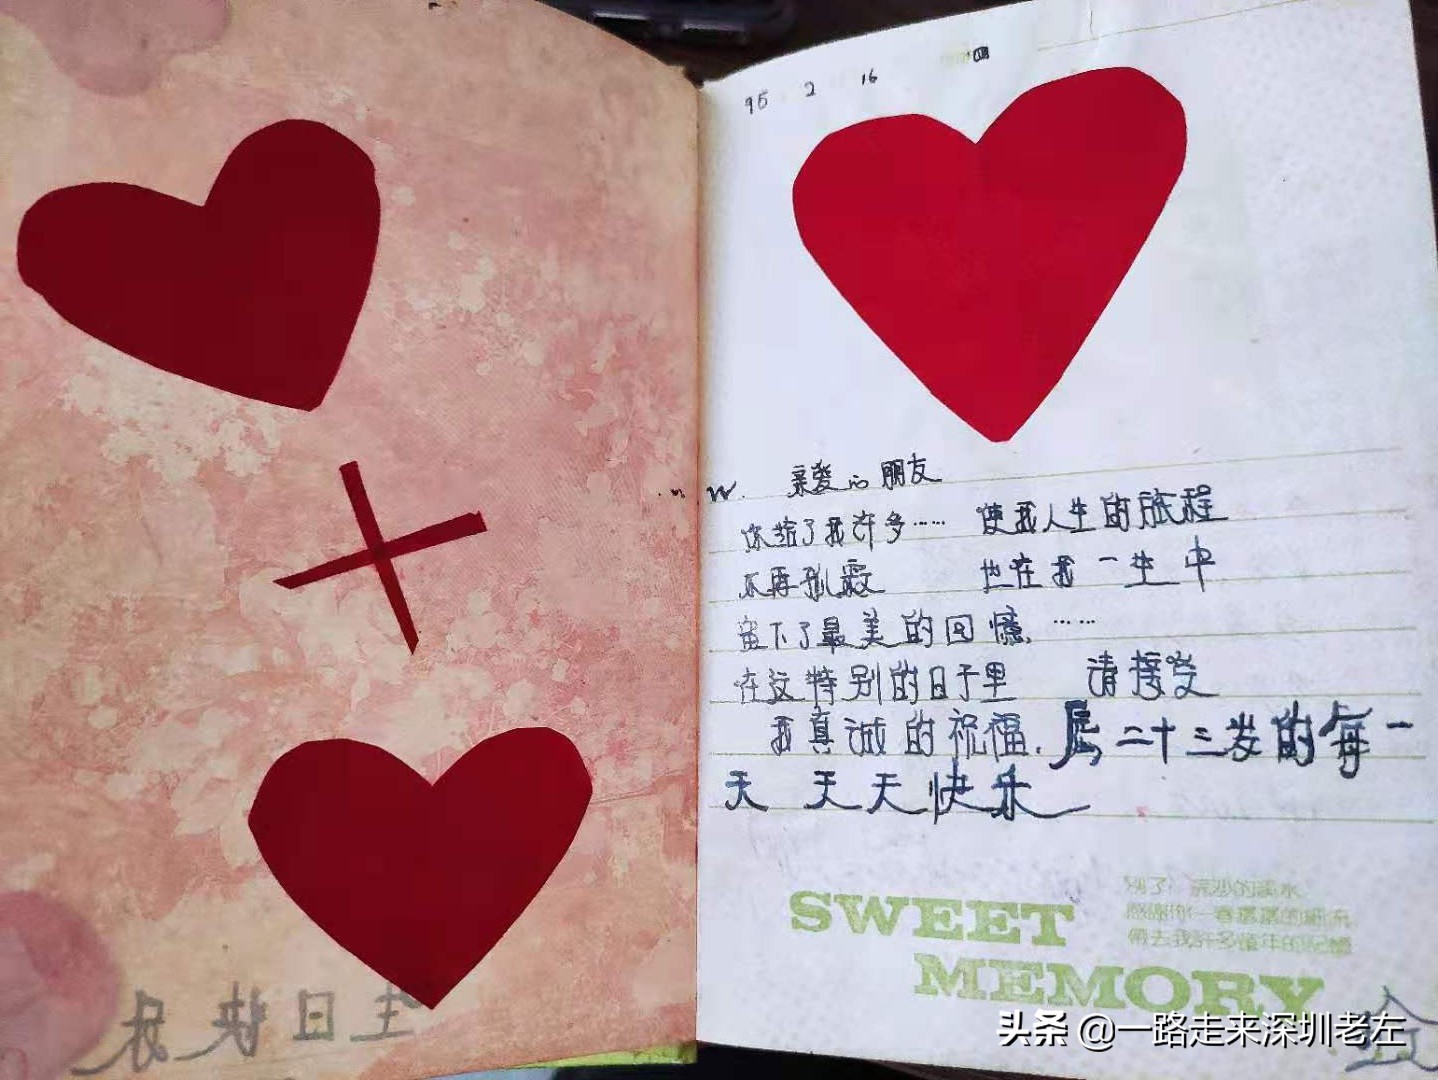 95 2 16 四
W. 亲爱的朋友
你给了我许多…… 使我人生的旅程
不再孤寂 也在我一生中
留下了最美的回憶……
在这特别的日子里 请接受
我真诚的祝福. 愿二十三岁的每一
天 天天快乐
SWEET
MEMORY
別了
感謝你一春
帶去我許多童年的記憶
生日快乐
头条 @一路走来深圳老左